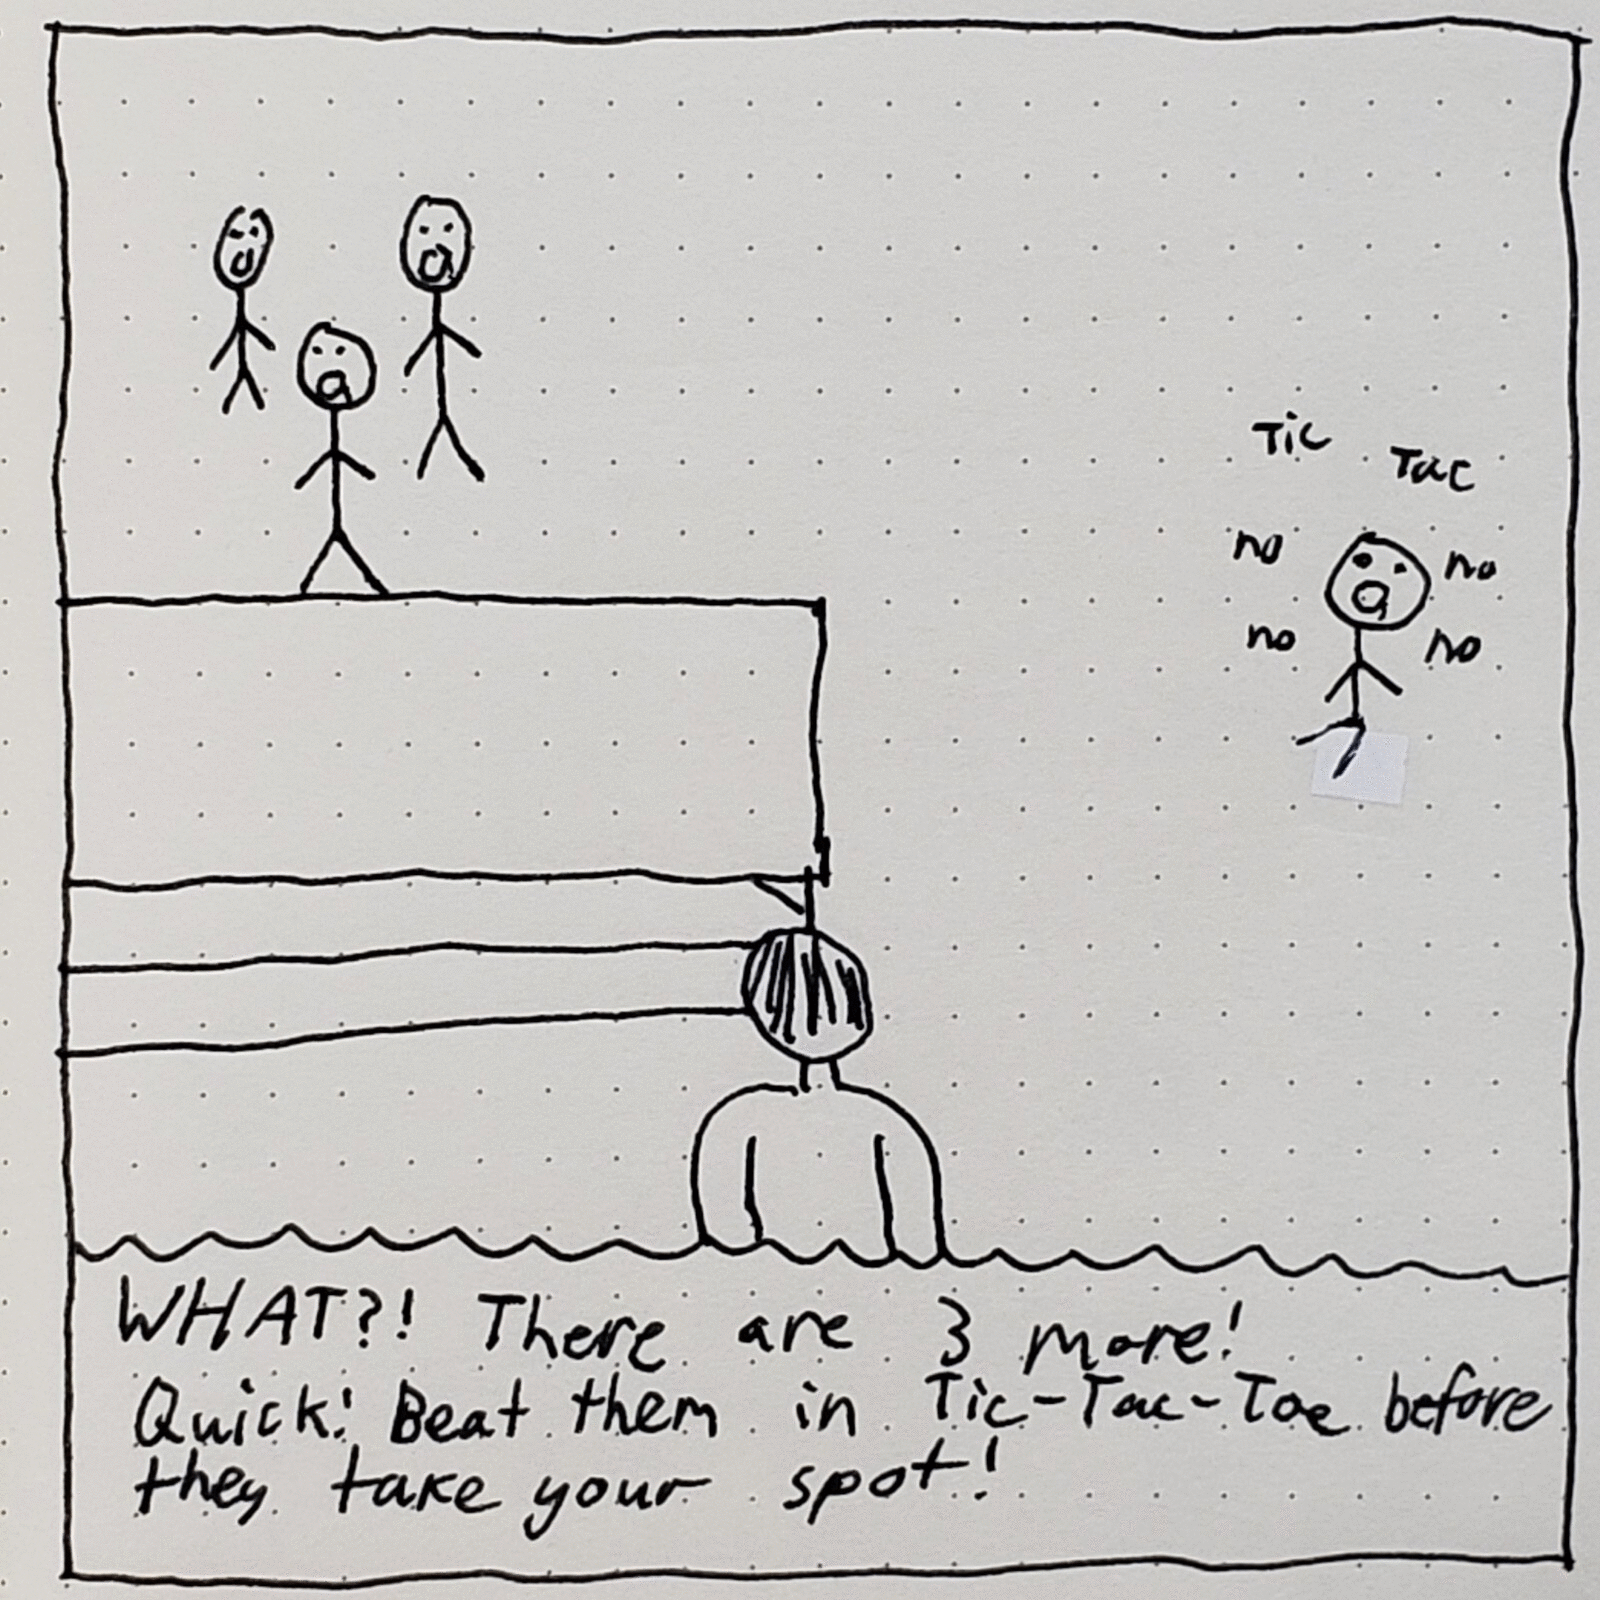 Tic
Tac
no no
no no
WHAT?! There are 3 more!
Quick! Beat them in Tic-Tac-Toe before
they take your spot!